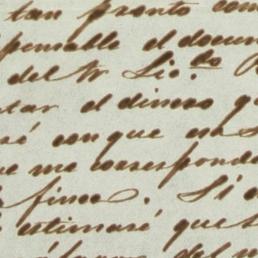 tan pronto com
pensable el docum
del Sr Lic.do
tar el dinero q
con que
e me corresponde
fino. Si
estimaré que
del